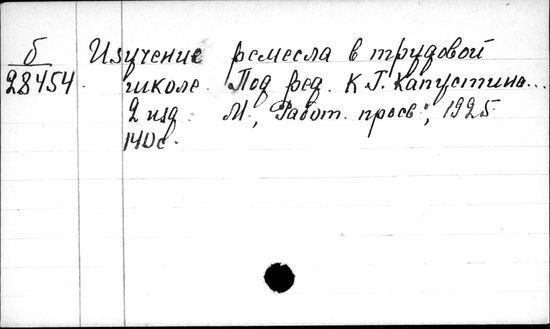 б Изучение ремесла в трудовой
28454. школе. Под ред. К. Г. Капустина...
2 изд. М., "Работ. просв.", 1925.
140 с.